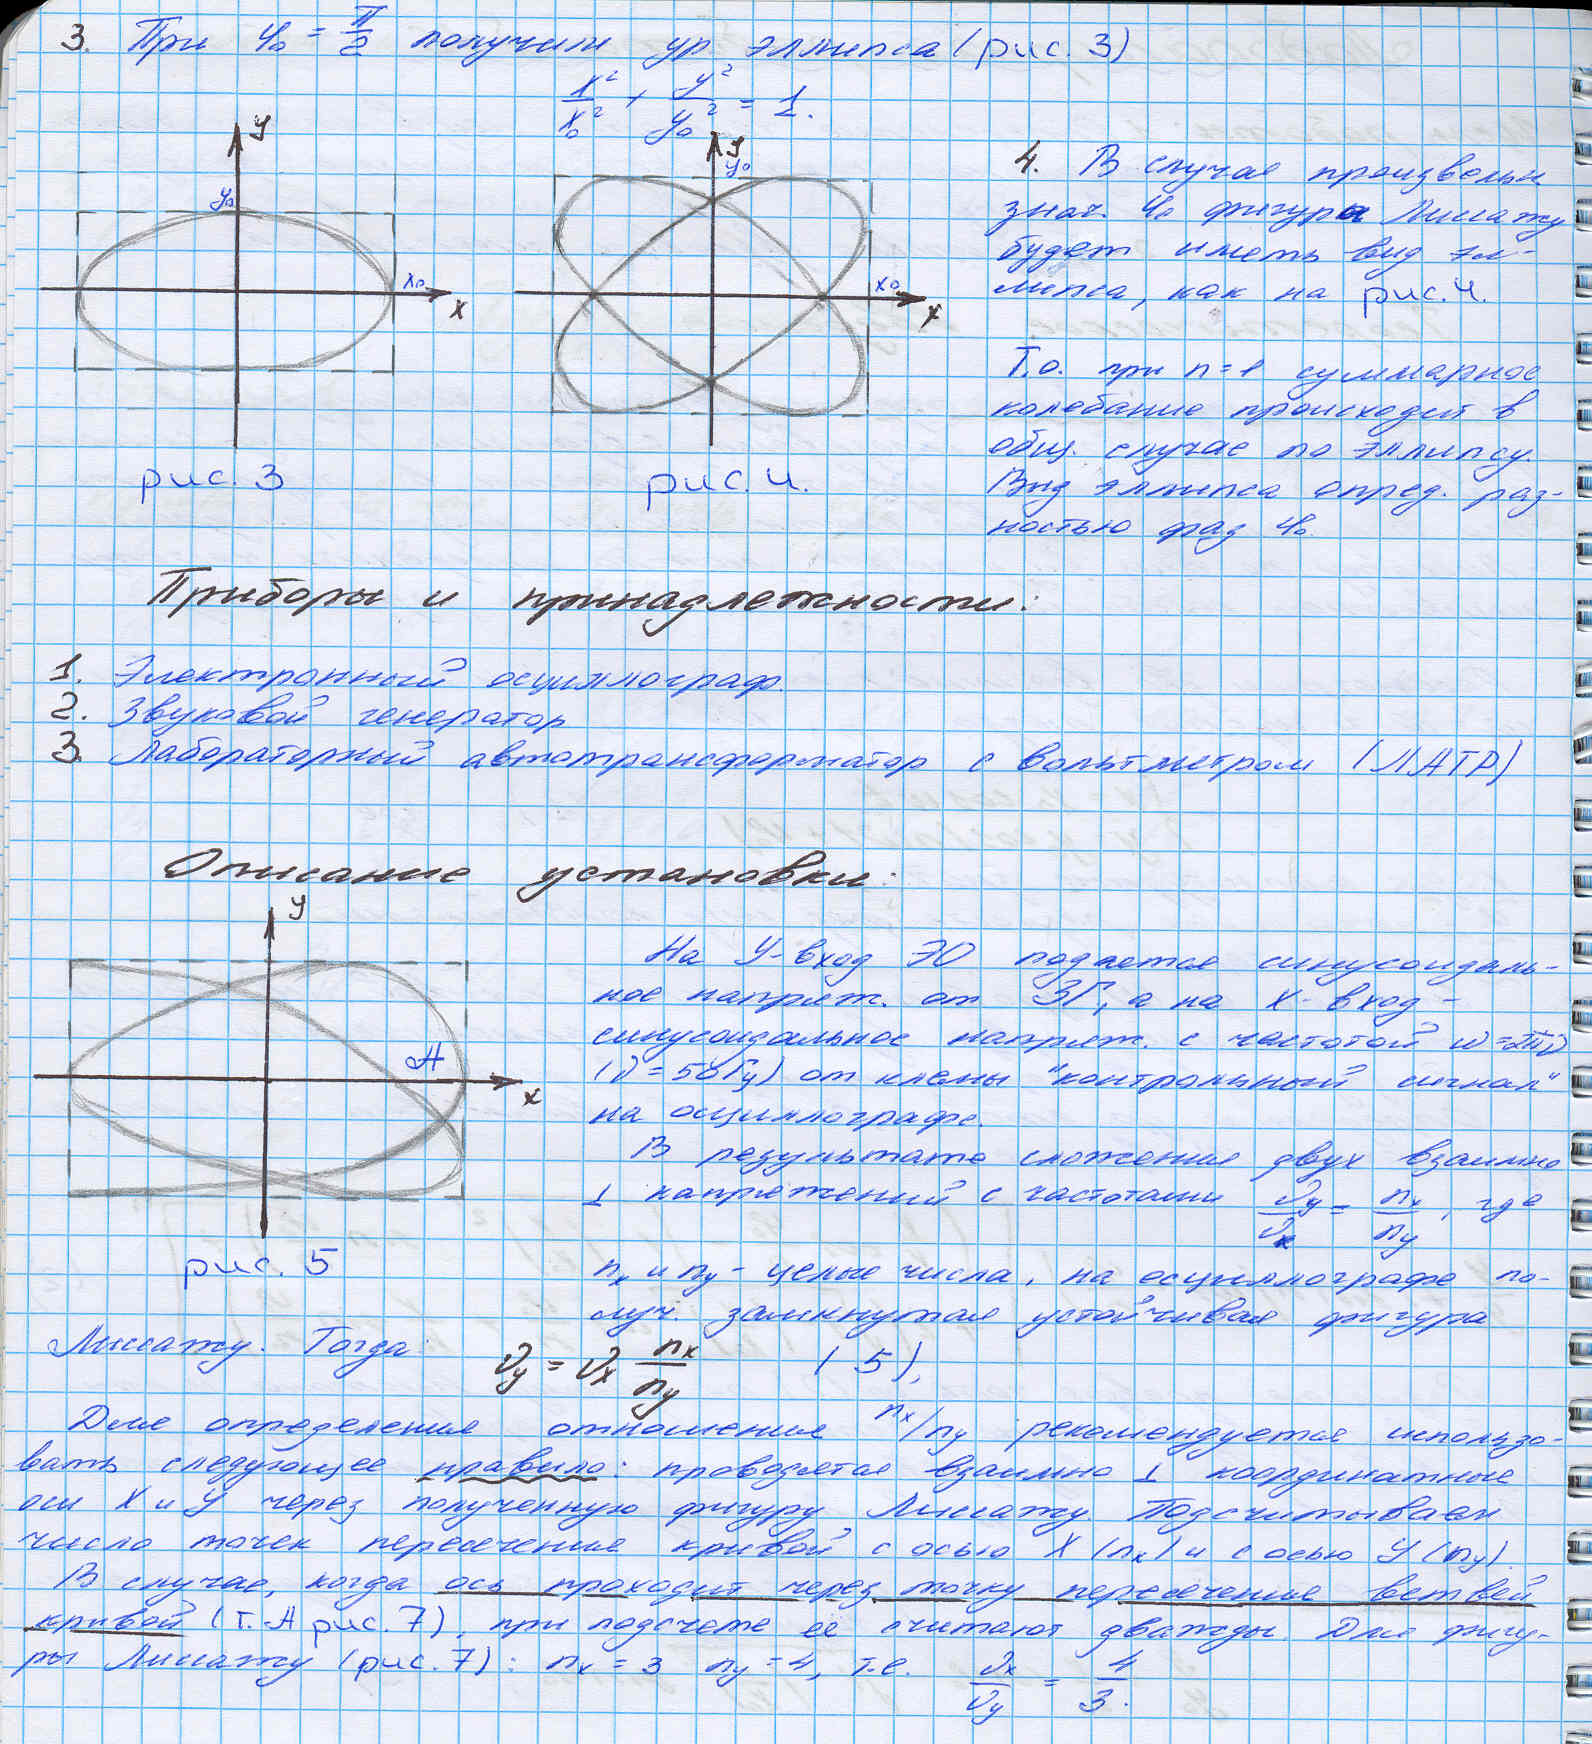 3. При φ₀ = π/2 получим ур эллипса (рис. 3)
x²/x₀² + y²/y₀² = 1.
y
y₀
x₀
x
рис. 3
y
y₀
x₀
x
рис. 4.
4. В случае произвольн
знач. φ₀ фигура Лиссажу
будет иметь вид эл-
липса, как на рис. 4.
Т.о. при n=1 суммарное
колебание происходит в
общ. случае по эллипсу.
Вид эллипса опред. раз-
ностью фаз φ₀.
Приборы и принадлежности:
1. Электронный осциллограф.
2. Звуковой генератор
3. Лабораторный автотрансформатор с вольтметром (ЛАТР)
Описание установки:
y
A
x
рис. 5
На У-вход ЭО подается синусоидаль-
ное напряж. от ЗГ, а на Х-вход -
синусоидальное напряж. с частотой ω=2πν
(ν=50Гц) от клемы "контрольный сигнал"
на осциллографе.
В результате сложения двух взаимно
⊥ напряжений с частотами νy/νx = nx/ny, где
nx и ny - целые числа, на осциллографе по-
луч. замкнутая устойчивая фигура
Лиссажу. Тогда:
νy = νx nx/ny (5),
Для определения отношения nx/ny рекомендуется использо-
вать следующее правило: проводятся взаимно ⊥ координатные
оси Х и У через полученную фигуру Лиссажу. Подсчитываем
число точек пересечения кривой с осью Х (nx) и с осью У (ny).
В случае, когда ось проходит через точку пересечения ветвей
кривой (т. А рис. 7), при подсчете ее считают дважды. Для фигу-
ры Лиссажу (рис. 7): nx = 3 ny = 4, т.е. νx/νy = 4/3.